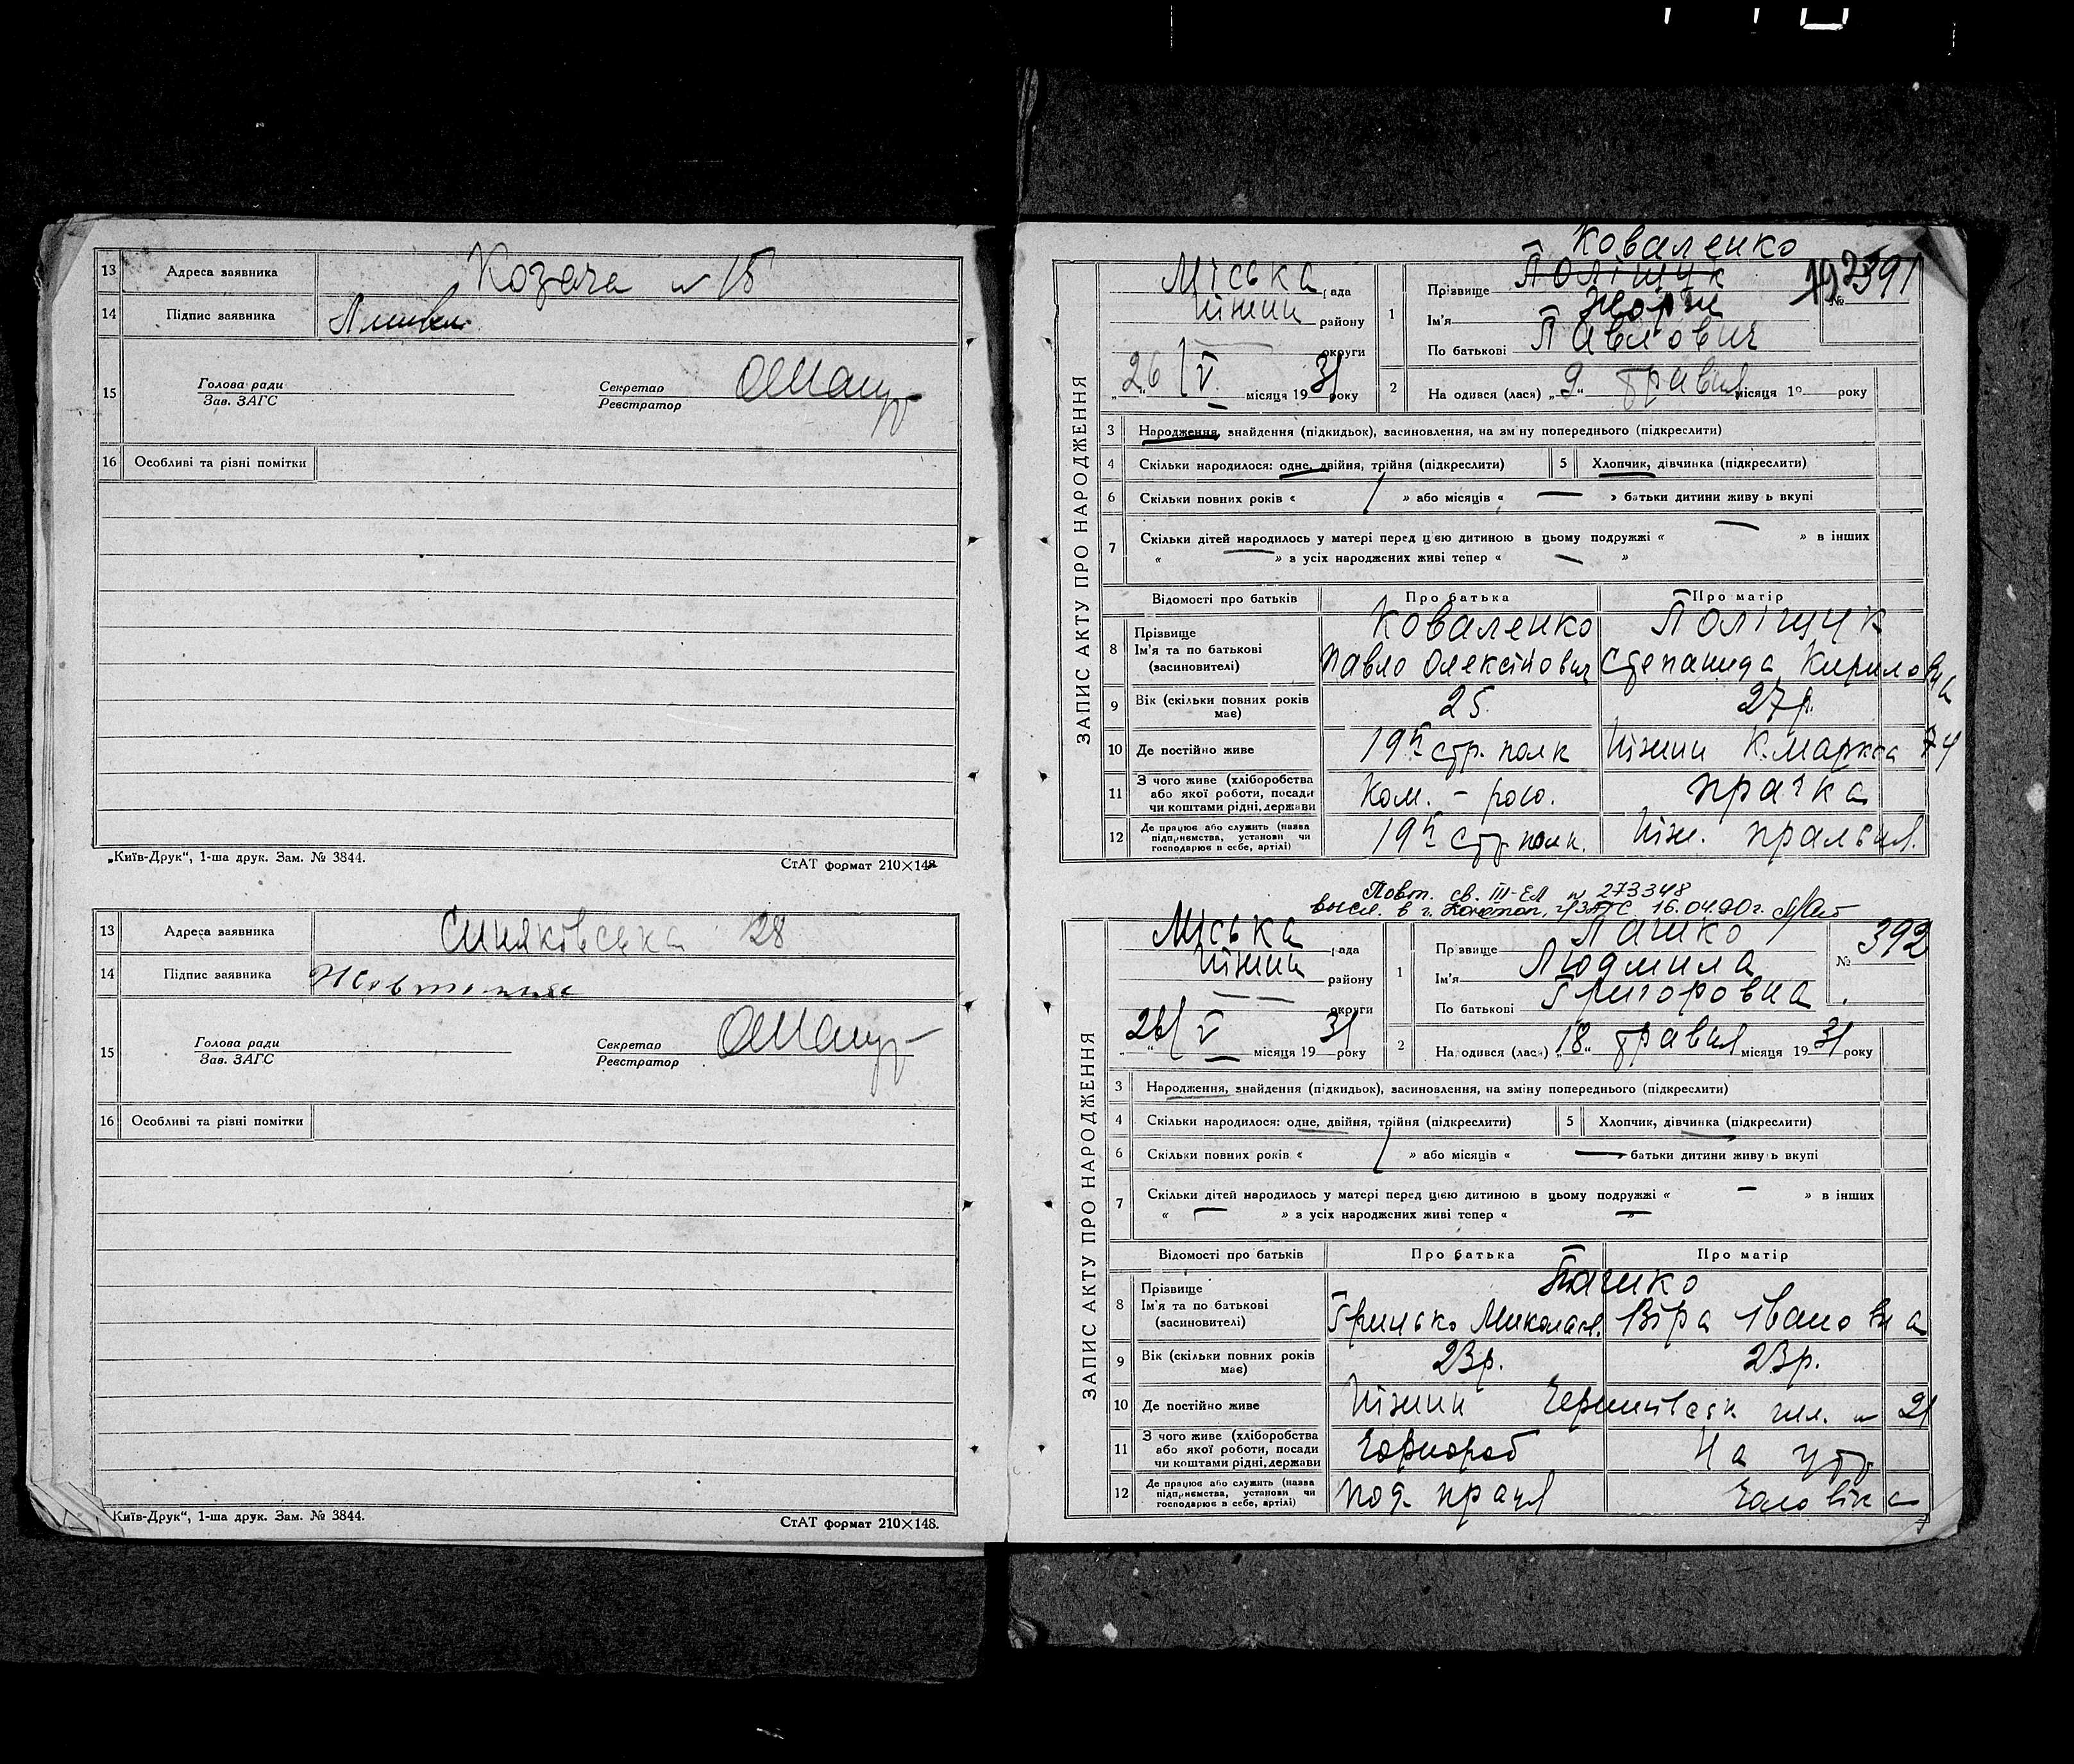 13 Адреса заявника Козача № 15
14 Підпис заявника
15 Голова ради Зав. ЗАГС Секретар Реєстратор
16 Особливі та різні помітки
„Київ-Друк“, 1-ша друк. Зам. № 3844. СтАТ формат 210×148
13 Адреса заявника Синяківська 28
14 Підпис заявника
15 Голова ради Зав. ЗАГС Секретар Реєстратор
16 Особливі та різні помітки
Київ-Друк“, 1-ша друк. Зам. № 3844. СтАТ формат 210×148.
ЗАПИС АКТУ ПРО НАРОДЖЕННЯ
Коваленко
Міська рада
Ніжин району
округи
„26“ V місяця 1931 року
1 Прізвище Поліщук № 391
Ім'я Жорж
По батькові Павлович
2 На одився (лася) „9“ травня місяця 19 року
3 Народження, знайдення (підкидьок), засиновлення, на зміну попереднього (підкреслити)
4 Скільки народилося: одне, двійня, трійня (підкреслити) 5 Хлопчик, дівчинка (підкреслити)
6 Скільки повних років « 1 » або місяців « — » батьки дитини живуь вкупі
7 Скільки дітей народилось у матері перед цією дитиною в цьому подружжі « — » в інших
« — » з усіх народжених живі тепер « — »
Відомості про батьків Про батька Про матір
8 Прізвище Ім'я та по батькові (засиновителі) Коваленко Поліщук
Павло Олексійович Степанида Кириловна
9 Вік (скільки повних років має) 25 27 р.
10 Де постійно живе 19й стр. полк Ніжин К. Маркса 74
11 З чого живе (хліборобства або якої роботи, посади чи коштами рідні, держави Ком. - рою. прачка
12 Де працює або служить (назва підприємства, установи чи господарює в себе, артілі) 19й стр. полк. Ніж. пральня.
Повт. св. III-ЕЛ № 273348
высл. в г. 16.04.90 г.
ЗАПИС АКТУ ПРО НАРОДЖЕННЯ
Міська рада
Ніжин району
округи
„26“ V місяця 1931 року
1 Прзвище Пашко № 392
Ім'я Людмила
По батькові Григоровна
2 На одився (лася) „18“ травня місяця 1931 року
3 Народження, знайдення (підкидьок), засиновлення, на зміну попереднього (підкреслити)
4 Скільки народилося: одне, двійня, трійня (підкреслити) 5 Хлопчик, дівчинка (підкреслити)
6 Скільки повних років « 1 » або місяців « — » батьки дитини живуь вкупі
7 Скільки дітей народилось у матері перед цією дитиною в цьому подружжі « — » в інших
« — » з усіх народжених живі тепер « — »
Відомості про батьків Про батька Про матір
8 Прізвище Ім'я та по батькові (засиновителі) Пашко
Грицько Миколаєв. Віра Івановна
9 Вік (скільки повних років має) 23 р. 23 р.
10 Де постійно живе Ніжин Чернигівськ шл. № 21
11 З чого живе (хліборобства або якої роботи, посади чи коштами рідні, держави Чорнороб На утр
12 Де працює або служить (назва підприємства, установи чи господарює в себе, артілі) под. праця Чоловіка